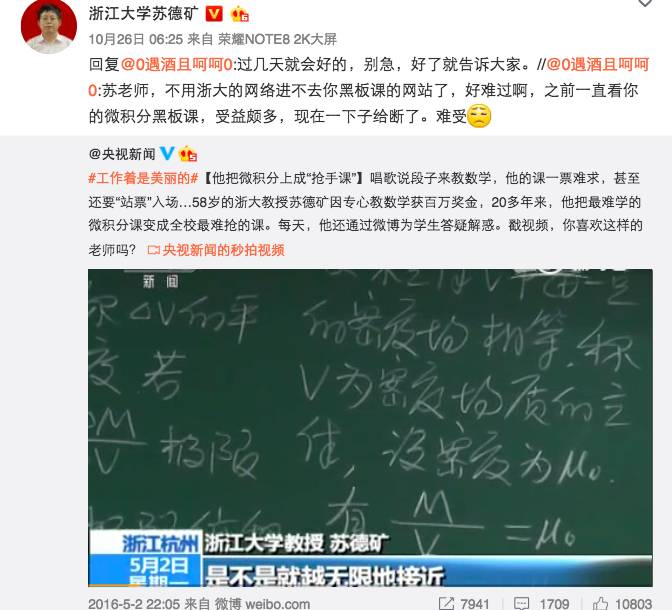 浙江大学苏德矿
10月26日 06:25 来自 荣耀NOTE8 2K大屏
回复@0遇酒且呵呵0:过几天就会好的，别急，好了就告诉大家。//@0遇酒且呵呵
0:苏老师，不用浙大的网络进不去你黑板课的网站了，好难过啊，之前一直看你
的微积分黑板课，受益颇多，现在一下子给断了。难受
@央视新闻
#工作着是美丽的#【他把微积分上成“抢手课”】唱歌说段子来教数学，他的课一票难求，甚至
还要“站票”入场...58岁的浙大教授苏德矿因专心教数学获百万奖金，20多年来，他把最难学的
微积分课变成全校最难抢的课。每天，他还通过微博为学生答疑解惑。戳视频，你喜欢这样的
老师吗？ 央视新闻的秒拍视频
新闻
ΔV的平
度若
M/V 极限
的密度均相等，称
V为密度均质的立
体，设密度为μ₀.
有 M/V =μ₀
浙江杭州 浙江大学教授 苏德矿
5月2日
星期一 是不是就越无限地接近
2016-5-2 22:05 来自 微博 weibo.com 7941 1709 10803